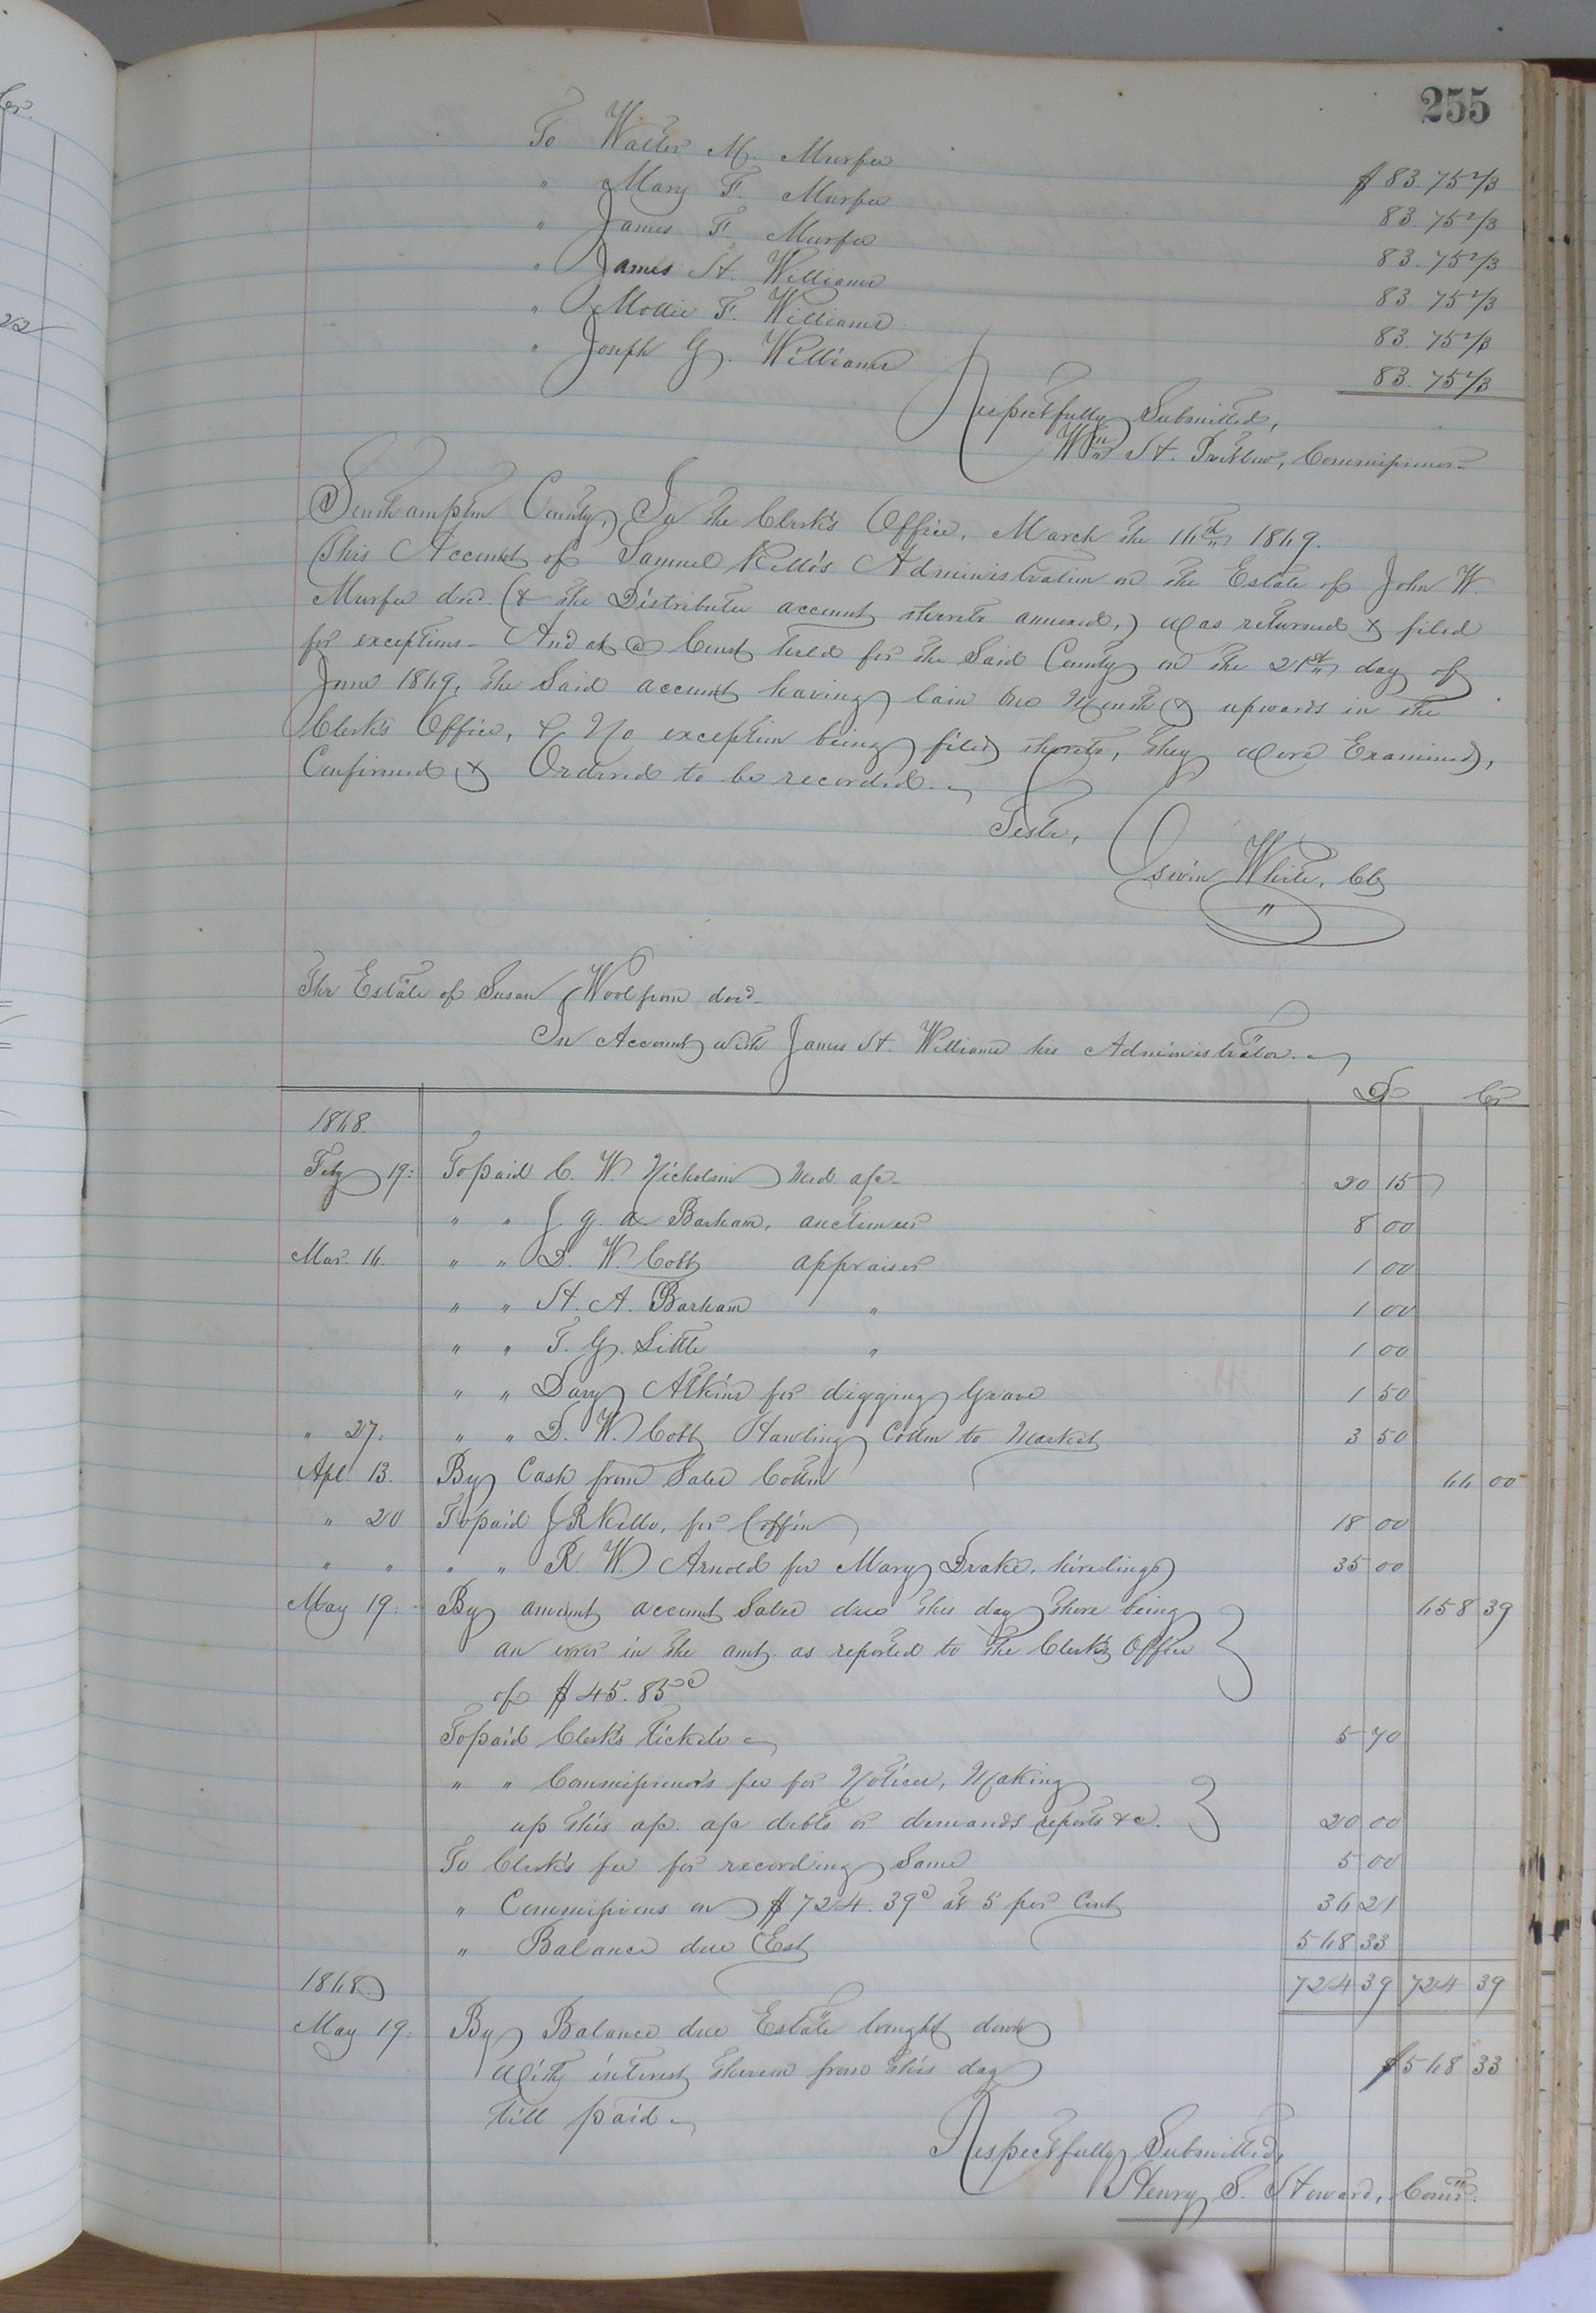 255
To Walter M. Murfee $ 83.75 2/3
" Mary F. Murfee 83.75 2/3
" James F. Murfee 83.75 2/3
" James H. Williams 83 75 2/3
" Mollie F. Williams 83.75 2/3
" Joseph G. Williams 83.75 2/3
Respectfully Submitted,
Wm H. Pretlow, Commissioner
Southampton County, In the Clerk's Office, March the 16th 1869.
This Account of Samuel Kello's Administration on the Estate of John W.
Murfee decd. (& the Distributee account thereto annexed,) was returned & filed
for exceptions - And at a Court held for the Said County on the 21st day of
June 1869, the Said account having lain one Month & upwards in the
Clerk's Office, & No exception being filed thereto, they were Examined,
Confirmed & Ordered to be recorded.
Teste,
White, Clk
The Estate of Susan Woolfrom decd
In Account with James H. Williams his Administrator.
Dr Cr
1868.
Feby 19: To paid C. W. Nicholson Med. a/c 20 15
" " J. G. A. Barham, auctioneer 8 00
Mar. 16. " " D. W. Cobb appraiser 1 00
" " H. A. Barham " 1 00
" " T. G. Little " 1 00
" " Davy Atkins for digging Grave 1 50
" 27: " " D. W. Cobb Hawling Cotton to Market 3 50
Apl 13. By Cash from Sales Cotton 66 00
" 20 To paid J R Kello, for Coffin 18 00
" " " " R. W. Arnold for Mary Drake, hirelings 35 00
May 19. By amount account Sales due this day there being 658 39
an error in the amt. as reported to the Clerk's Office
of $ 45.85c
To paid Clerk's tickets 5 70
" " Commissioner's fee for Notices, Making
up this a/c. a/c debts or demands reports &c. 20 00
To Clerk's fee for recording Same 5 00
" Commissions on $ 724.39c at 5 per Cent 36 21
" Balance due Est 568 33
1868 724 39 724 39
May 19: By Balance due Estate brought down
with interest thereon from this day $ 568 33
till paid
Respectfully Submitted,
Henry S. Howard, Comr.